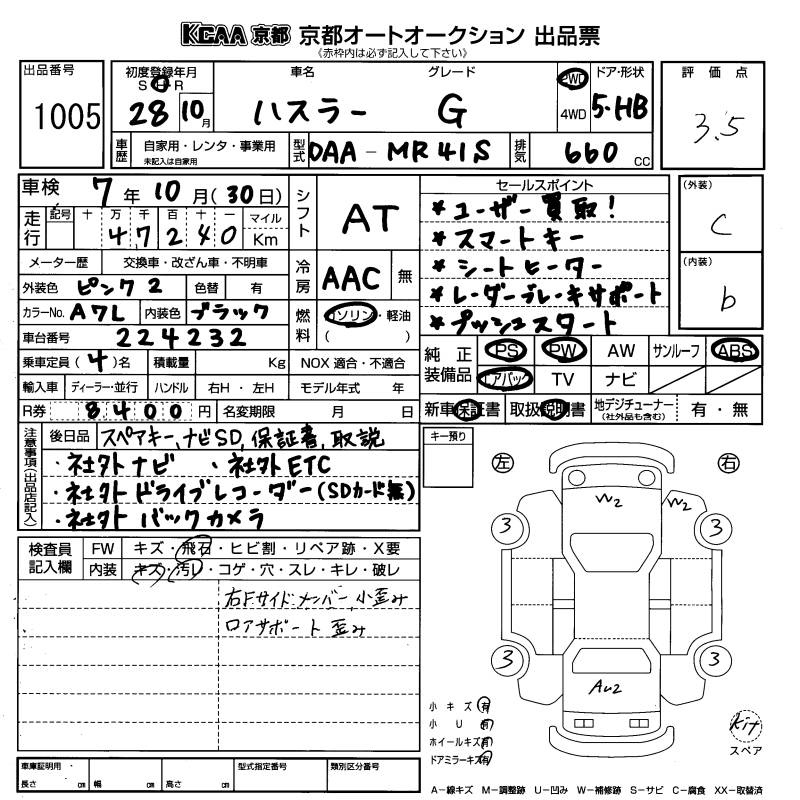 KCAA 京都 京都オートオークション 出品票
《赤枠内は必ず記入して下さい》
出品番号
1005
初度登録年月
S H R
28 10月
車名
ハスラー
グレード
G
2WD
4WD
ドア・形状
5・HB
車歴
自家用・レンタ・事業用
未記入は自家用
型式
DAA-MR41S
排気
660 cc
評価点
3.5
車検 7年10月(30日)
走行
記号 十 万 千 百 十 一
47240
マイル
Km
シフト
AT
メーター歴 交換車・改ざん車・不明車
外装色 ピンク2 色替 有
冷房
AAC 無
カラーNo. A7L 内装色 ブラック
燃料
ガソリン・軽油
( )
車台番号 224232
乗車定員(4)名 積載量 Kg
NOX 適合・不適合
輸入車 ディーラー・並行 ハンドル 右H・左H
モデル年式 年
R券 8400円 名変期限 月 日
セールスポイント
*ユーザー買取!
*スマートキー
*シートヒーター
*レーダーブレーキサポート
*プッシュスタート
(外装)
C
(内装)
b
純正装備品
PS PW AW サンルーフ ABS
エアバック TV ナビ
新車保証書 取扱説明書 地デジチューナー
(社外品も含む)
有・無
注意事項(出品店記入)
後日品 スペアキー,ナビSD,保証書,取説
・社外ナビ ・社外ETC
・社外ドライブレコーダー(SDカード無)
・社外バックカメラ
キー預り
検査員記入欄
FW キズ・飛石・ヒビ割・リペア跡・X要
内装 キズ・汚レ・コゲ・穴・スレ・キレ・破レ
右Fサイドメンバー,小歪み
ロアサポート歪み
左 右
W2 W2
3 3
3 3
AU2
小キズ 有
小U 有
ホイールキズ 有
ドアミラーキズ 有
kit
スペア
車庫証明用・
長さ cm 幅 cm 高さ cm
型式指定番号
類別区分番号
A−線キズ M−調整跡 U−凹み W−補修跡 S−サビ C−腐食 XX−取替済